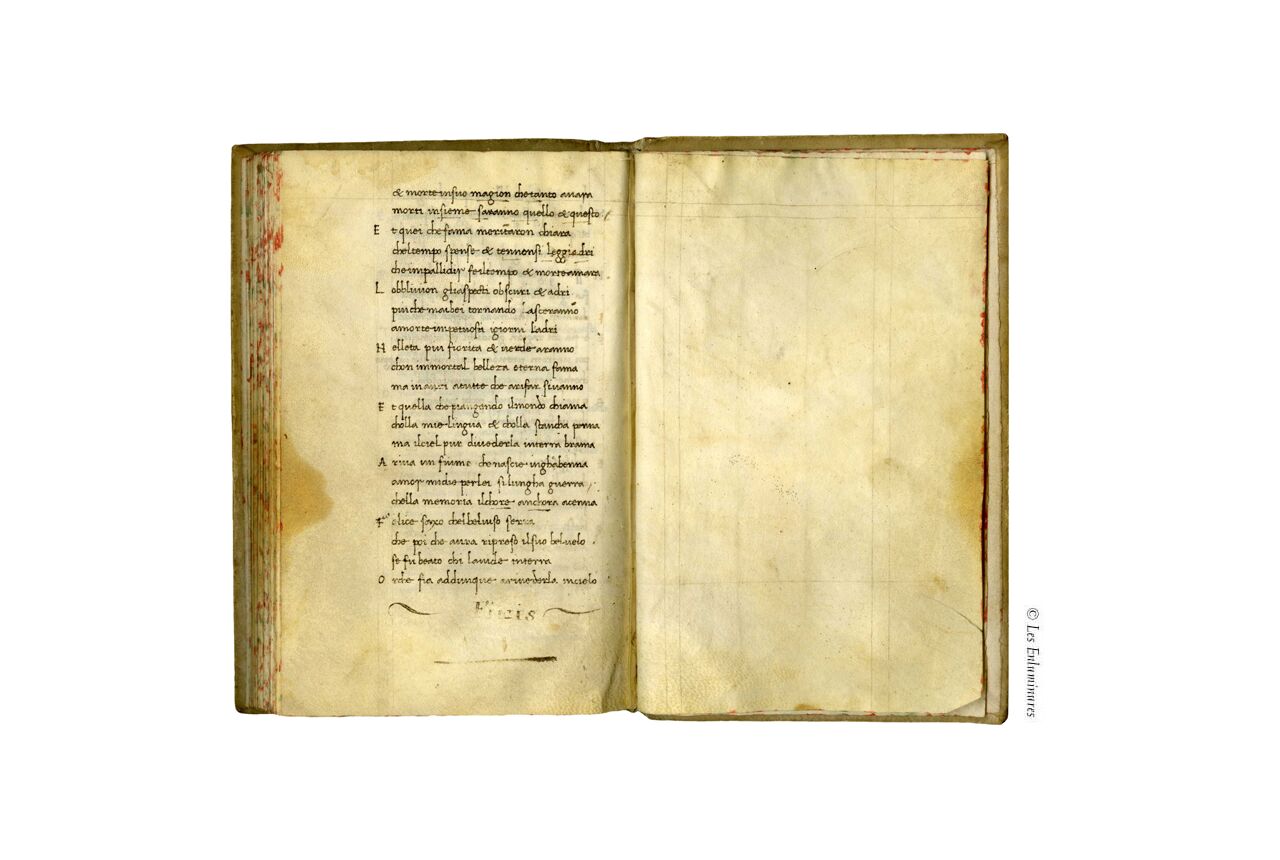 & morte in suo magion che tanto auara
morti insieme saranno quello & questo
E t quei che fama meritaron chiara
chel tempo spense & tennensi leggiadri
che impallidir fe il tempo & morte amara
L obbliuion gli aspecti obscuri & adri
piu che mai bei tornando lasceranno
a morte impetuosi i giorni ladri
N elleta piu fiorita & uerde aranno
chon immortal belleza eterna fama
ma inanzi atutte che arifar si uanno
E t quella che piangendo il mondo chiama
cholla mie lingua & cholla stancha penna
ma il ciel pur di uederla interra brama
A riua un fiume che nascie in ghabenna
amor midie per lei si lungha guerra
chella memoria il chore anchora acenna
F elice saxo chel bel uiso serra
che poi che aura ripreso il suo bel uelo
se fu beato chi lauide interra
O rche fia addunque a riuederla in cielo
Finis
© Les Enluminures